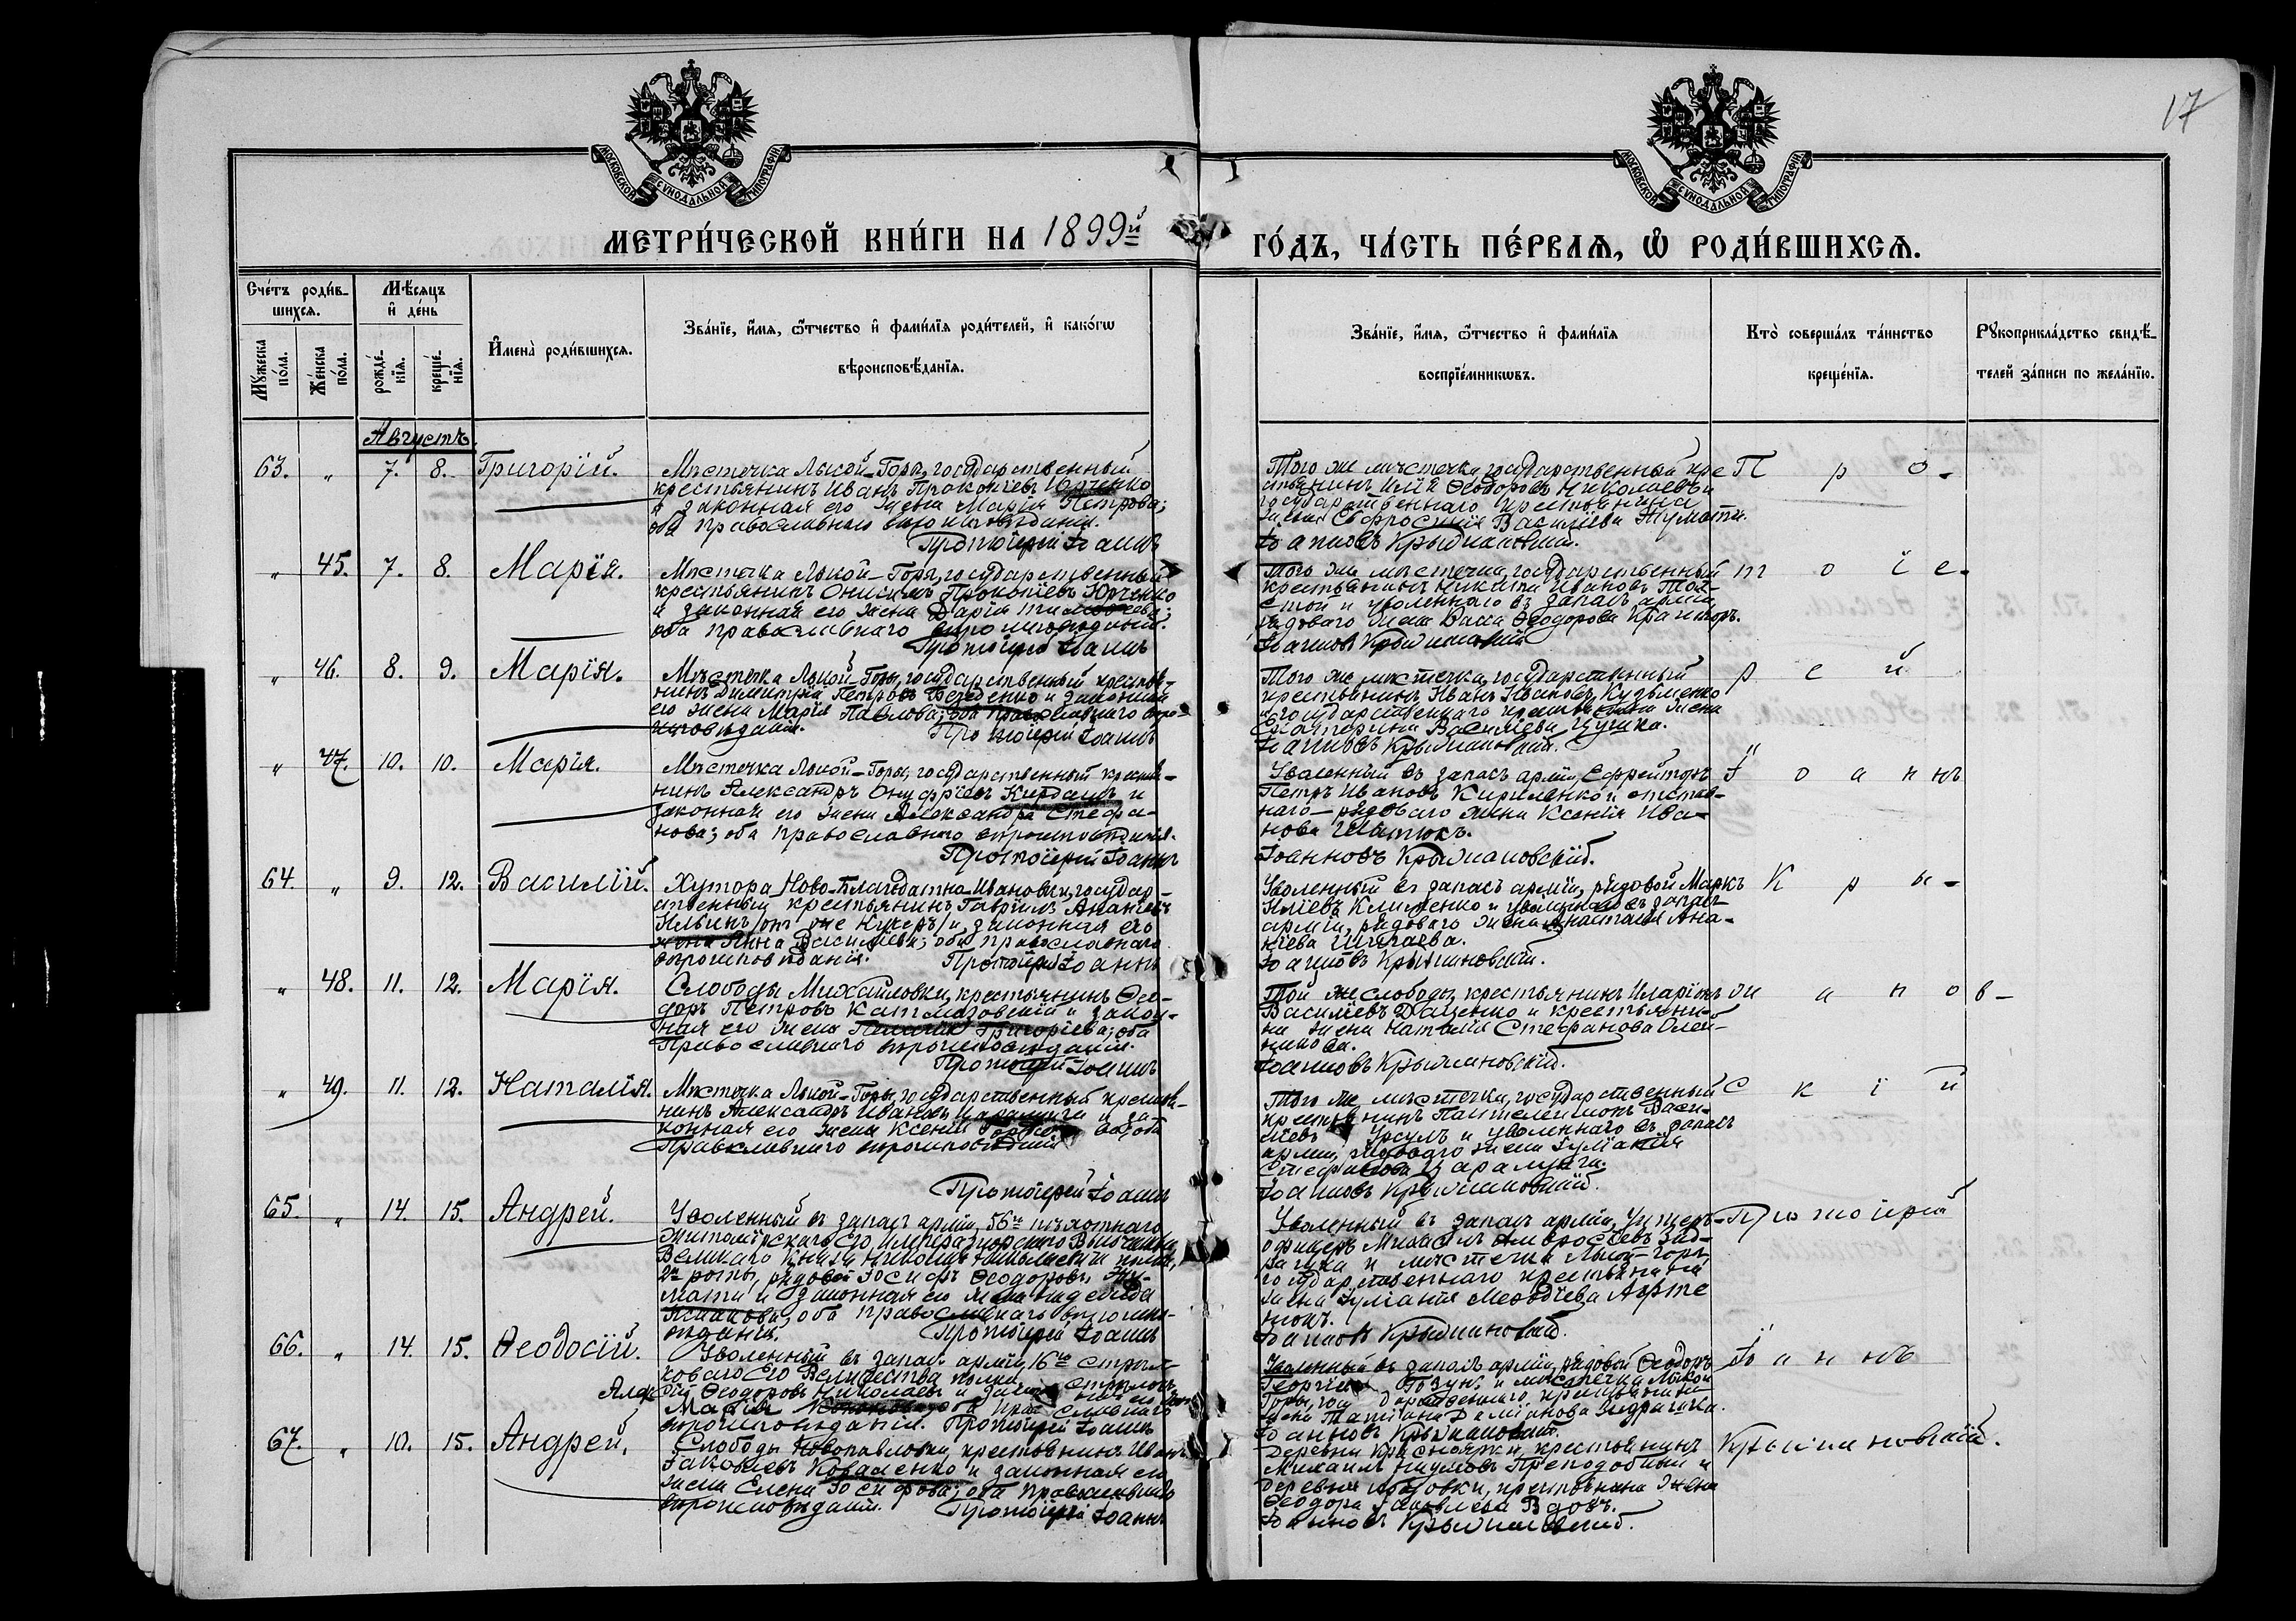 17
МОСКОВСКОЙ СѴНОДАЛЬНОЙ ТИПОГРАФІИ
МОСКОВСКОЙ СѴНОДАЛЬНОЙ ТИПОГРАФІИ
МЕТРИ́ЧЕСКОЙ КНИ́ГИ НА 1899й
ГО́ДЪ, ЧА́СТЬ ПЕ́РВАѦ, Ѽ РОДИ́ВШИХСѦ.
Сче́тъ роди́в-
шихсѧ.
Мꙋ́жеска по́ла.
Же́нска по́ла.
Мѣ́сѧцъ
и҆ де́нь
рожде́-
нїѧ.
креще́-
нїѧ.
И҆мена̀ роди́вшихсѧ.
Зва́нїе, и҆́мѧ, ѻ҆́тчество и҆ фами́лїѧ роди́телей, и҆ како́гѡ
вѣроисповѣ́данїѧ.
Зва́нїе, и҆́мѧ, ѻ҆́тчество и҆ фами́лїѧ
воспрїе́мникѡвъ.
Кто̀ соверша́лъ та́инство
креще́нїѧ.
Рꙋкоприкла́дство свидѣ́-
телей за́писи по жела́нїю.
Августъ.
63. " 7. 8. Григорій.
Мѣстечка Лысой-Горы, государственный
крестьянинъ Иванъ Прокопіевъ Юрченко
и законная его жена Марія Петрова;
оба православнаго вѣроисповѣданія.
Протоіерей Іоаннъ
Того же мѣстечка, государственный кре
стьянинъ Илія Ѳеодоровъ Николаевъ и
государственнаго крестьянина
жена Евфросинія Василіева
Іоанновъ Крыжановскій.
П р о-
" 45. 7. 8. Марія.
Мѣстечка Лысой-Горы, государственный
крестьянинъ Онисимъ Прокопіевъ Юрченко
и законная его жена Дарія Тимоѳеева;
оба православнаго вѣроисповѣданія.
Протоіерей Іоаннъ
Того же мѣстечка, государственный
крестьянинъ Никита Ивановъ Тол-
стой и уволеннаго въ запасъ арміи,
рядоваго жена Васса Ѳеодорова
Іоанновъ Крыжановскій
т о і е-
" 46. 8. 9. Марія.
Мѣстечка Лысой-Горы, государственный крестья-
нинъ Димитрій Петровъ и законная
его жена Марія Павлова; оба православнаго вѣро-
исповѣданія. Протоіерей Іоаннъ
Того же мѣстечка, государственный
крестьянинъ Иванъ Ивановъ Кузьменко
и государственнаго крестьянина жена
Екатерина Василіева
Іоанновъ Крыжановскій.
р е й
" 47. 10. 10. Марія.
Мѣстечка Лысой-Горы, государственный крестья-
нинъ Александръ Онуфріевъ и
законная его жена Александра Стефа-
нова; оба православнаго вѣроисповѣданія.
Протоіерей Іоаннъ
Уволенный въ запасъ арміи, Ефрейторъ
Петръ Ивановъ Кириленко и отстав-
наго-рядоваго жена Ксенія Ива-
нова
Іоанновъ Крыжановскій.
І о а н нъ
64. " 9. 12. Василій.
Хутора Ново-Благодатно-Ивановки, государ-
ственный крестьянинъ Гавріилъ Ананіевъ
Ильинъ /онъ же Кучеръ/ и законная его
жена Анна Василіева; оба православнаго
вѣроисповѣданія. Протоіерей Іоаннъ
Уволенный въ запасъ арміи, рядовой Маркъ
Иліевъ Клименко и уволеннаго въ запасъ
арміи, рядоваго жена Анастасія Ана-
ніева
Іоанновъ Крыжановскій.
К р ы-
" 48. 11. 12. Марія.
Слободы Михайловки, крестьянинъ Ѳео-
доръ Петровъ и закон-
ная его жена Григоріева; оба
Православнаго вѣроисповѣданія.
Протоіерей Іоаннъ
Той же слободы, крестьянинъ Иларіонъ
Василіевъ Даценко и крестьяни-
на жена Наталія Стефанова Олей-
никова.
Іоанновъ Крыжановскій.
ж а н о в-
" 49. 11. 12. Наталія.
Мѣстечка Лысой-Горы, государственный крестья-
нинъ Александръ Ивановъ и за-
конная его жена Ксенія оба
Православнаго вѣроисповѣданія
Протоіерей Іоаннъ
Того же мѣстечка, государственный
крестьянинъ Пантелеимонъ Васи-
ліевъ Урсулъ и уволеннаго въ запасъ
арміи, рядоваго жена Іуліанія
Стефанова
Іоанновъ Крыжановскій.
с к і й
65. " 14. 15. Андрей.
Уволенный въ запасъ арміи, 56го пѣхотнаго
Житомірскаго Его Императорскаго Высочества
Великаго Князя Николая Николаевича полка,
2й роты, рядовой Іосифъ Ѳеодоровъ
и законная его жена Надежда
оба православнаго вѣроиспо-
вѣданія. Протоіерей Іоаннъ
Уволенный въ запасъ арміи, Унтеръ-
офицеръ Михаилъ Амвросіевъ
и мѣстечка Лысой-Горы
государственнаго крестьянина
жена Іуліанія Меѳодіева
Іоанновъ Крыжановскій.
Протоіерей
66. " 14. 15. Ѳеодосій.
Уволенный въ запасъ арміи, 16го стрѣл-
коваго Его Величества полка,
Ѳеодоровъ Николаевъ и
Марія оба православнаго
вѣроисповѣданія. Протоіерей Іоаннъ
Уволенный въ запасъ арміи, рядовой Ѳеодоръ
Георгіевъ и мѣстечка Лысой
Горы, крестьянина
жена Татіана Даміанова
Іоанновъ Крыжановскій.
Іоаннъ
67. " 10. 15. Андрей.
Слободы Новопавловки, крестьянинъ Иванъ
Іаковлевъ Коваленко и законная его
жена Елена Іосифова; оба православнаго
вѣроисповѣданія. Протоіерей Іоаннъ
Деревни Красноярки, крестьянинъ
Михаилъ Наумовъ Преподобный и
деревни крестьянина жена
Ѳеодора Іаковлева
Іоанновъ Крыжановскій.
Крыжановскій.